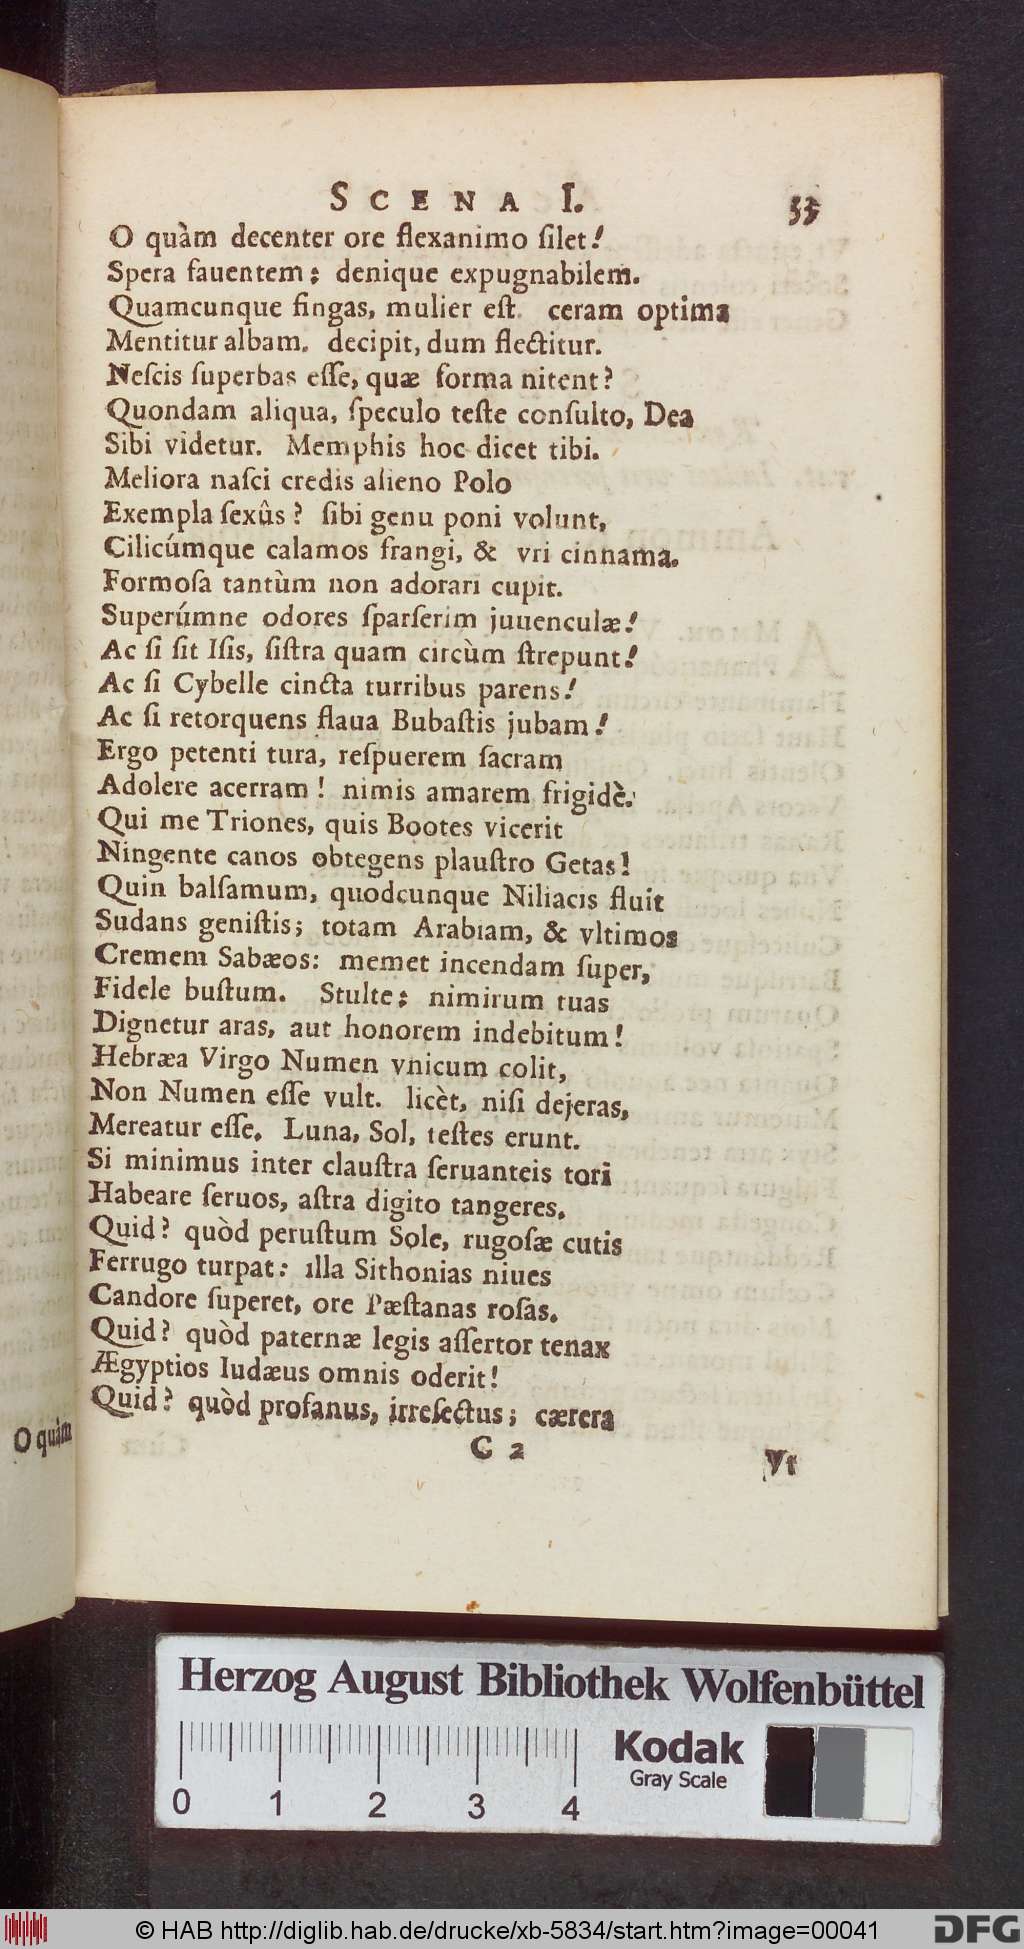 SCENA I. 35
O quàm decenter ore flexanimo ſilet!
Spera fauentem; denique expugnabilem.
Quamcunque fingas, mulier eſt. ceram optima
Mentitur albam. decipit, dum flectitur.
Neſcis ſuperbas eſſe, quæ forma nitent?
Quondam aliqua, ſpeculo teſte conſulto, Dea
Sibi videtur. Memphis hoc dicet tibi.
Meliora naſci credis alieno Polo
Exempla ſexûs? ſibi genu poni volunt,
Cilicúmque calamos frangi, & vri cinnama.
Formoſa tantùm non adorari cupit.
Superúmne odores ſparſerim juuenculæ!
Ac ſi ſit Iſis, ſiſtra quam circùm ſtrepunt!
Ac ſi Cybelle cincta turribus parens!
Ac ſi retorquens flaua Bubaſtis jubam!
Ergo petenti tura, reſpuerem ſacram
Adolere acerram! nimis amarem frigidè.
Qui me Triones, quis Bootes vicerit
Ningente canos obtegens plauſtro Getas!
Quin balſamum, quodcunque Niliacis fluit
Sudans geniſtis; totam Arabiam, & vltimos
Cremem Sabæos: memet incendam ſuper,
Fidele buſtum. Stulte; nimirum tuas
Dignetur aras, aut honorem indebitum!
Hebræa Virgo Numen vnicum colit,
Non Numen eſſe vult. licèt, niſi dejeras,
Mereatur eſſe. Luna, Sol, teſtes erunt.
Si minimus inter clauſtra ſeruanteis tori
Habeare ſeruos, aſtra digito tangeres.
Quid? quòd peruſtum Sole, rugoſæ cutis
Ferrugo turpat: illa Sithonias niues
Candore ſuperet, ore Pæſtanas roſas.
Quid? quòd paternæ legis aſſertor tenax
Ægyptios Iudæus omnis oderit!
Quid? quòd profanus, irreſectus; cætera
C 2 Vt
O quàm
Herzog August Bibliothek Wolfenbüttel
Kodak
Gray Scale
0 1 2 3 4
© HAB http://diglib.hab.de/drucke/xb-5834/start.htm?image=00041
DFG